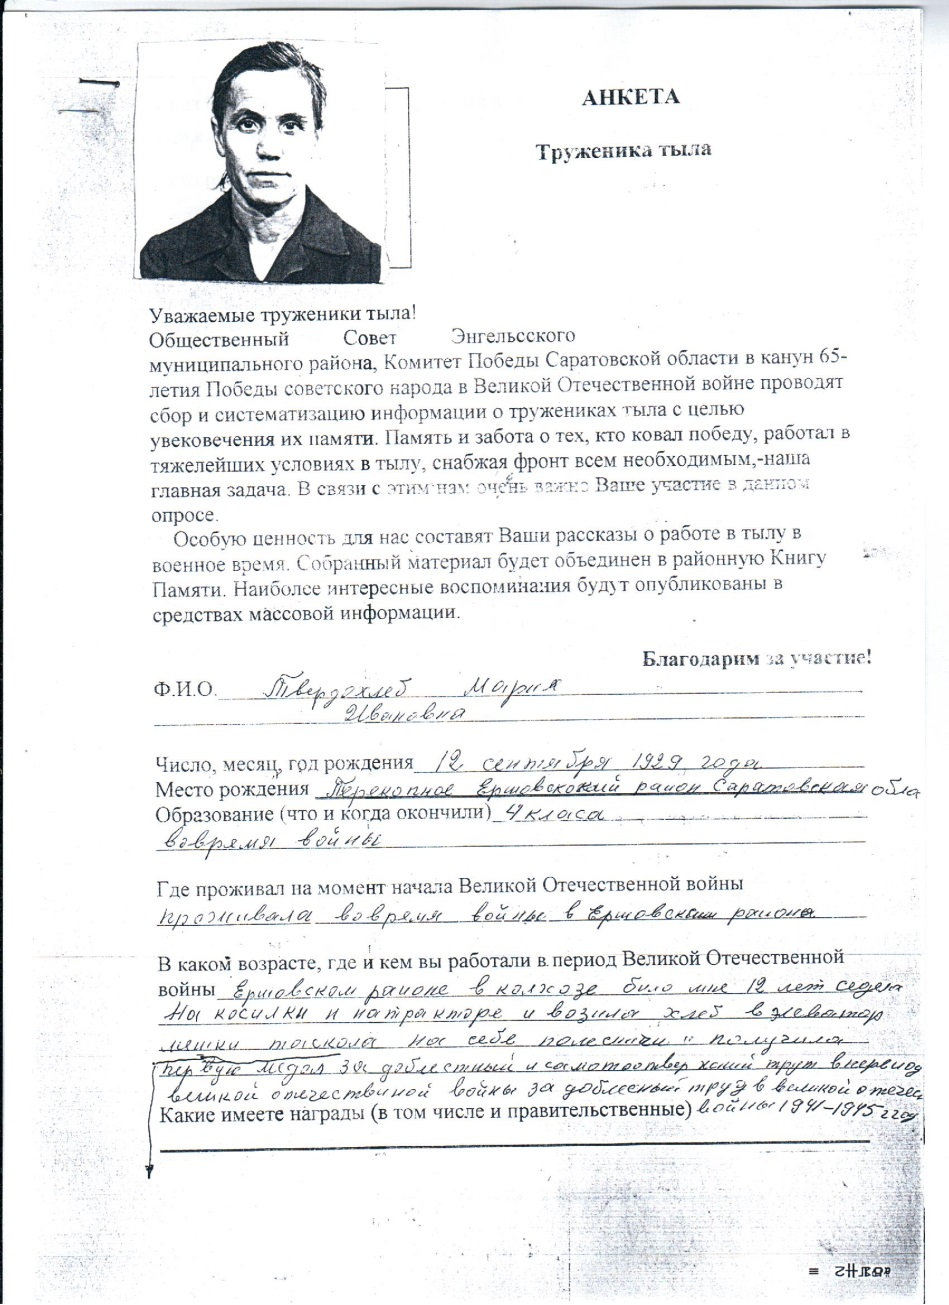 АНКЕТА
Труженика тыла
Уважаемые труженики тыла!
Общественный Совет Энгельсского
муниципального района, Комитет Победы Саратовской области в канун 65-
летия Победы советского народа в Великой Отечественной войне проводят
сбор и систематизацию информации о тружениках тыла с целью
увековечения их памяти. Память и забота о тех, кто ковал победу, работал в
тяжелейших условиях в тылу, снабжая фронт всем необходимым,-наша
главная задача. В связи с этим нам очень важно Ваше участие в данном
опросе.
Особую ценность для нас составят Ваши рассказы о работе в тылу в
военное время. Собранный материал будет объединен в районную Книгу
Памяти. Наиболее интересные воспоминания будут опубликованы в
средствах массовой информации.
Благодарим за участие!
Ф.И.О. Твердохлеб Мария
Ивановна
Число, месяц, год рождения 12 сентября 1929 года
Место рождения Перекопное Ершовский район Саратовская обла
Образование (что и когда окончили) 4 класа
вовремя войны
Где проживал на момент начала Великой Отечественной войны
проживала вовремя войны в Ершовским района
В каком возрасте, где и кем вы работали в период Великой Отечественной
войны Ершовском районе в колхозе было мне 12 лет седела
На косилки и на тракторе и возила хлеб в элеватор
мешки таскола на себе полесници и получила
первую медал за доблестный и самоотверженский трут в период
великой отечествиной войны за доблесный труд в великой отечес
Какие имеете награды (в том числе и правительственные) войны 1941-1945 г год